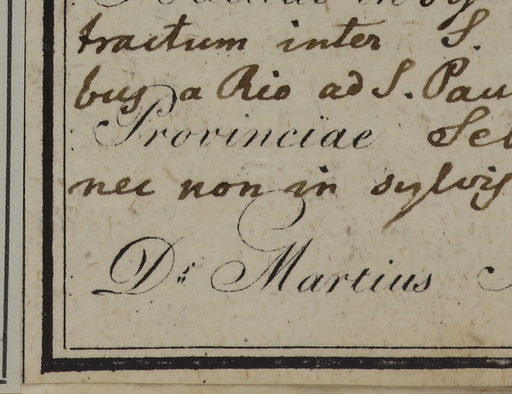 tractum inter S.
bus a Rio ad S. Pau
Provinciae Seb
nec non in sylvis
Dr. Martius